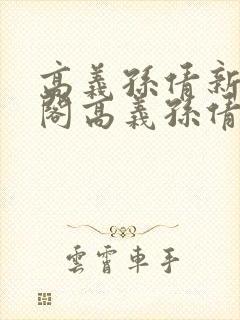 高義孫倩新
閣高義孫倩
雲霄車手